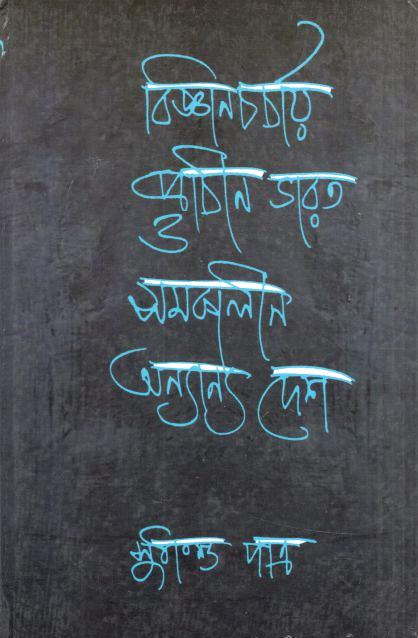 বিজ্ঞানচর্চায়
প্রাচীন ভারত
ও
সমকালীন
অন্যান্য দেশ
সুধাংশু পাত্র